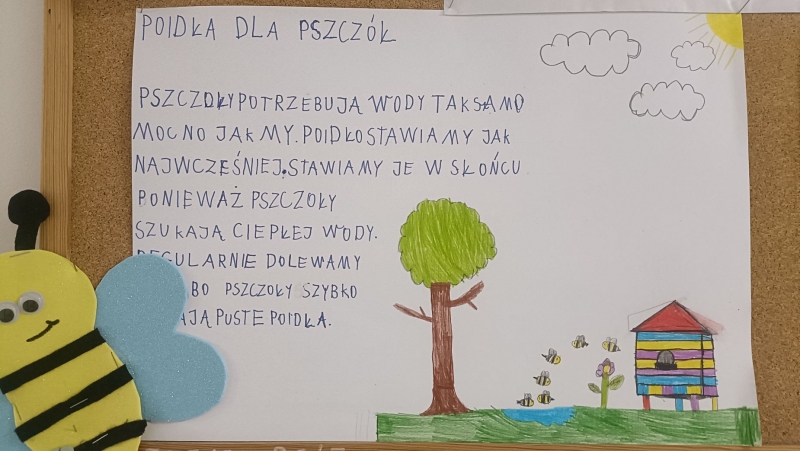 POIDŁA DLA PSZCZÓŁ
PSZCZOŁY POTRZEBUJĄ WODY TAK SAMO
MOCNO JAK MY. POIDŁO STAWIAMY JAK
NAJWCZEŚNIEJ. STAWIAMY JE W SŁOŃCU
PONIEWAŻ PSZCZOŁY
SZUKAJĄ CIEPŁEJ WODY.
REGULARNIE DOLEWAMY
BO PSZCZOŁY SZYBKO
PUSTE POIDŁA.